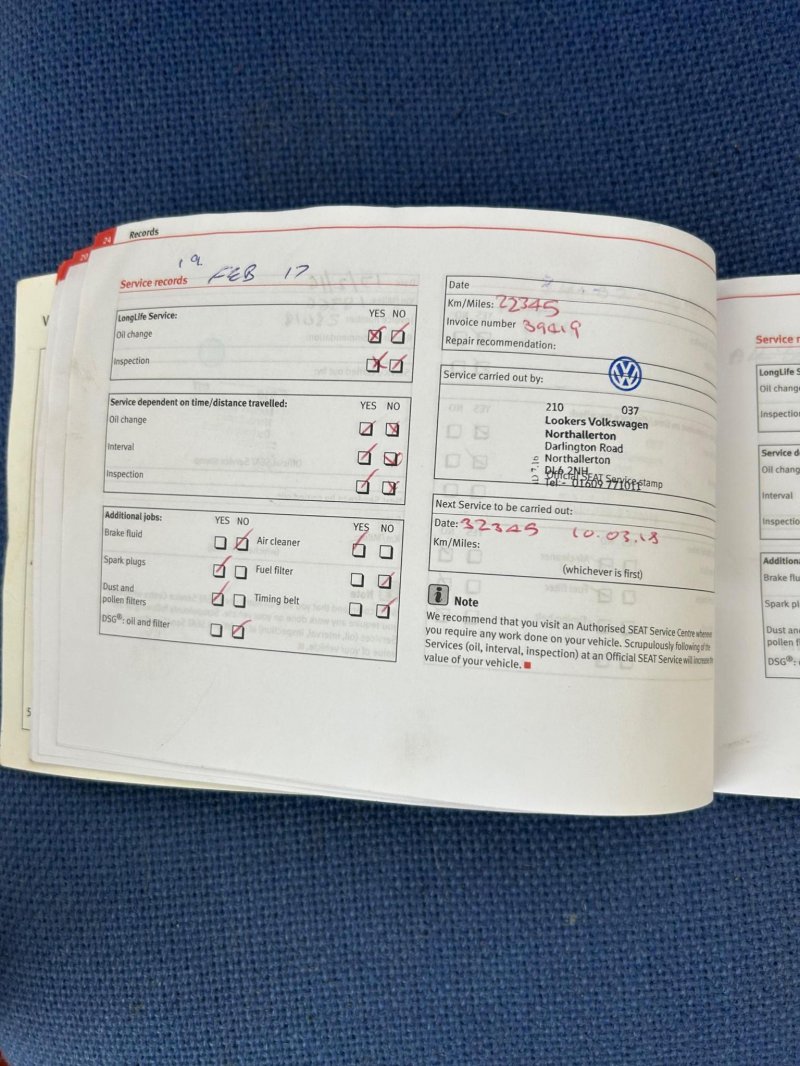 24 Records
20
19 FEB 17
Service records
LongLife Service: YES NO
Oil change
Inspection
Service dependent on time/distance travelled: YES NO
Oil change
Interval
Inspection
Additional jobs: YES NO YES NO
Brake fluid Air cleaner
Spark plugs Fuel filter
Dust and
pollen filters Timing belt
DSG®: oil and filter
Date
Km/Miles: 22345
Invoice number 39419
Repair recommendation:
Service carried out by:
210 037
Lookers Volkswagen
Northallerton
Darlington Road
Northallerton
DL6 2NH
Official SEAT Service stamp
Tel:- 01609 771011
Next Service to be carried out:
Date: 32345 10.03.18
Km/Miles:
(whichever is first)
i Note
We recommend that you visit an Authorised SEAT Service Centre whenever
you require any work done on your vehicle. Scrupulously following of the
Services (oil, interval, inspection) at an Official SEAT Service will increase the
value of your vehicle.
Service r
LongLife S
Oil chang
Inspectio
Service d
Oil chang
Interval
Inspectio
Additiona
Brake flu
Spark pl
Dust an
pollen f
DSG®: